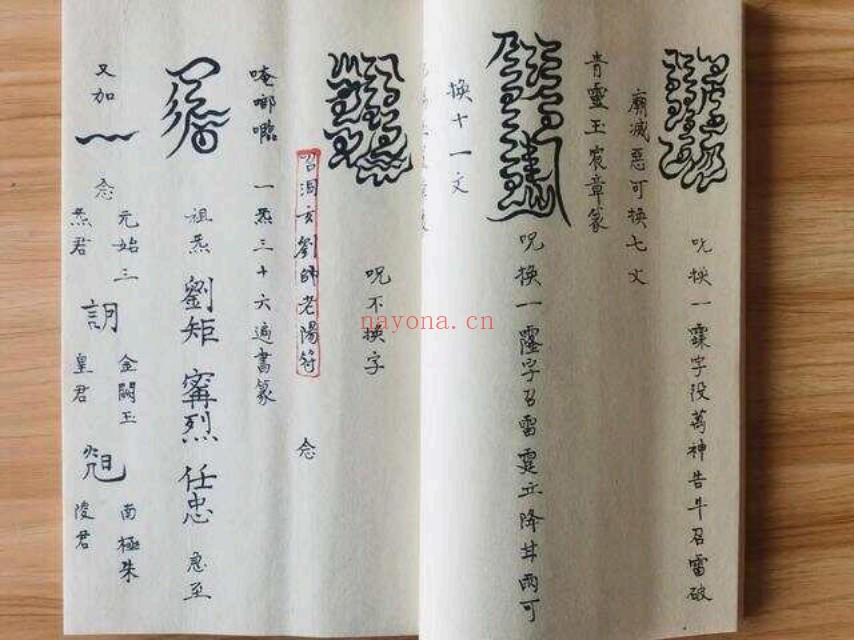 呪換一霂字役萬神告斗召雷破
廟滅惡可換七文
青靈玉宸章篆
呪換一霳字召雷霆立降甘雨可
換十一文
呪不換字
召洞玄劉師老陽符
念
唵啷㘕
一炁三十六遍書篆
祖炁 劉矩 甯烈 任忠 急至
又加
念 元始三炁君
詷 金闕玉皇君
南極朱陵君
nayona.cn